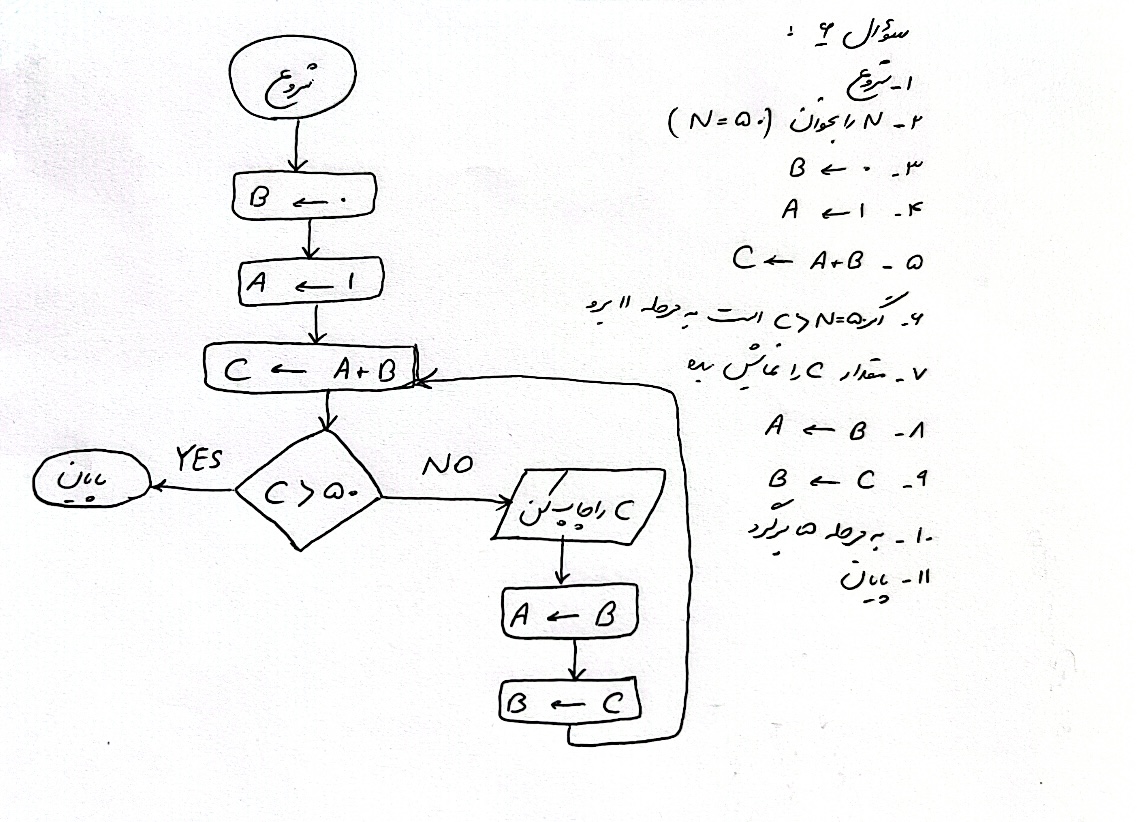 سؤال ۶ :
۱- شروع
۲- N را بخوان (N=۵۰)
۳- B ← ۰
۴- A ← ۱
۵- C ← A+B
۶- اگر C>N=۵۰ است به مرحله ۱۱ برو
۷- مقدار C را نمایش بده
۸- A ← B
۹- B ← C
۱۰- به مرحله ۵ برگرد
۱۱- پایان
شروع
B ← ۰
A ← ۱
C ← A+B
C > ۵۰
YES
پایان
NO
C را چاپ کن
A ← B
B ← C